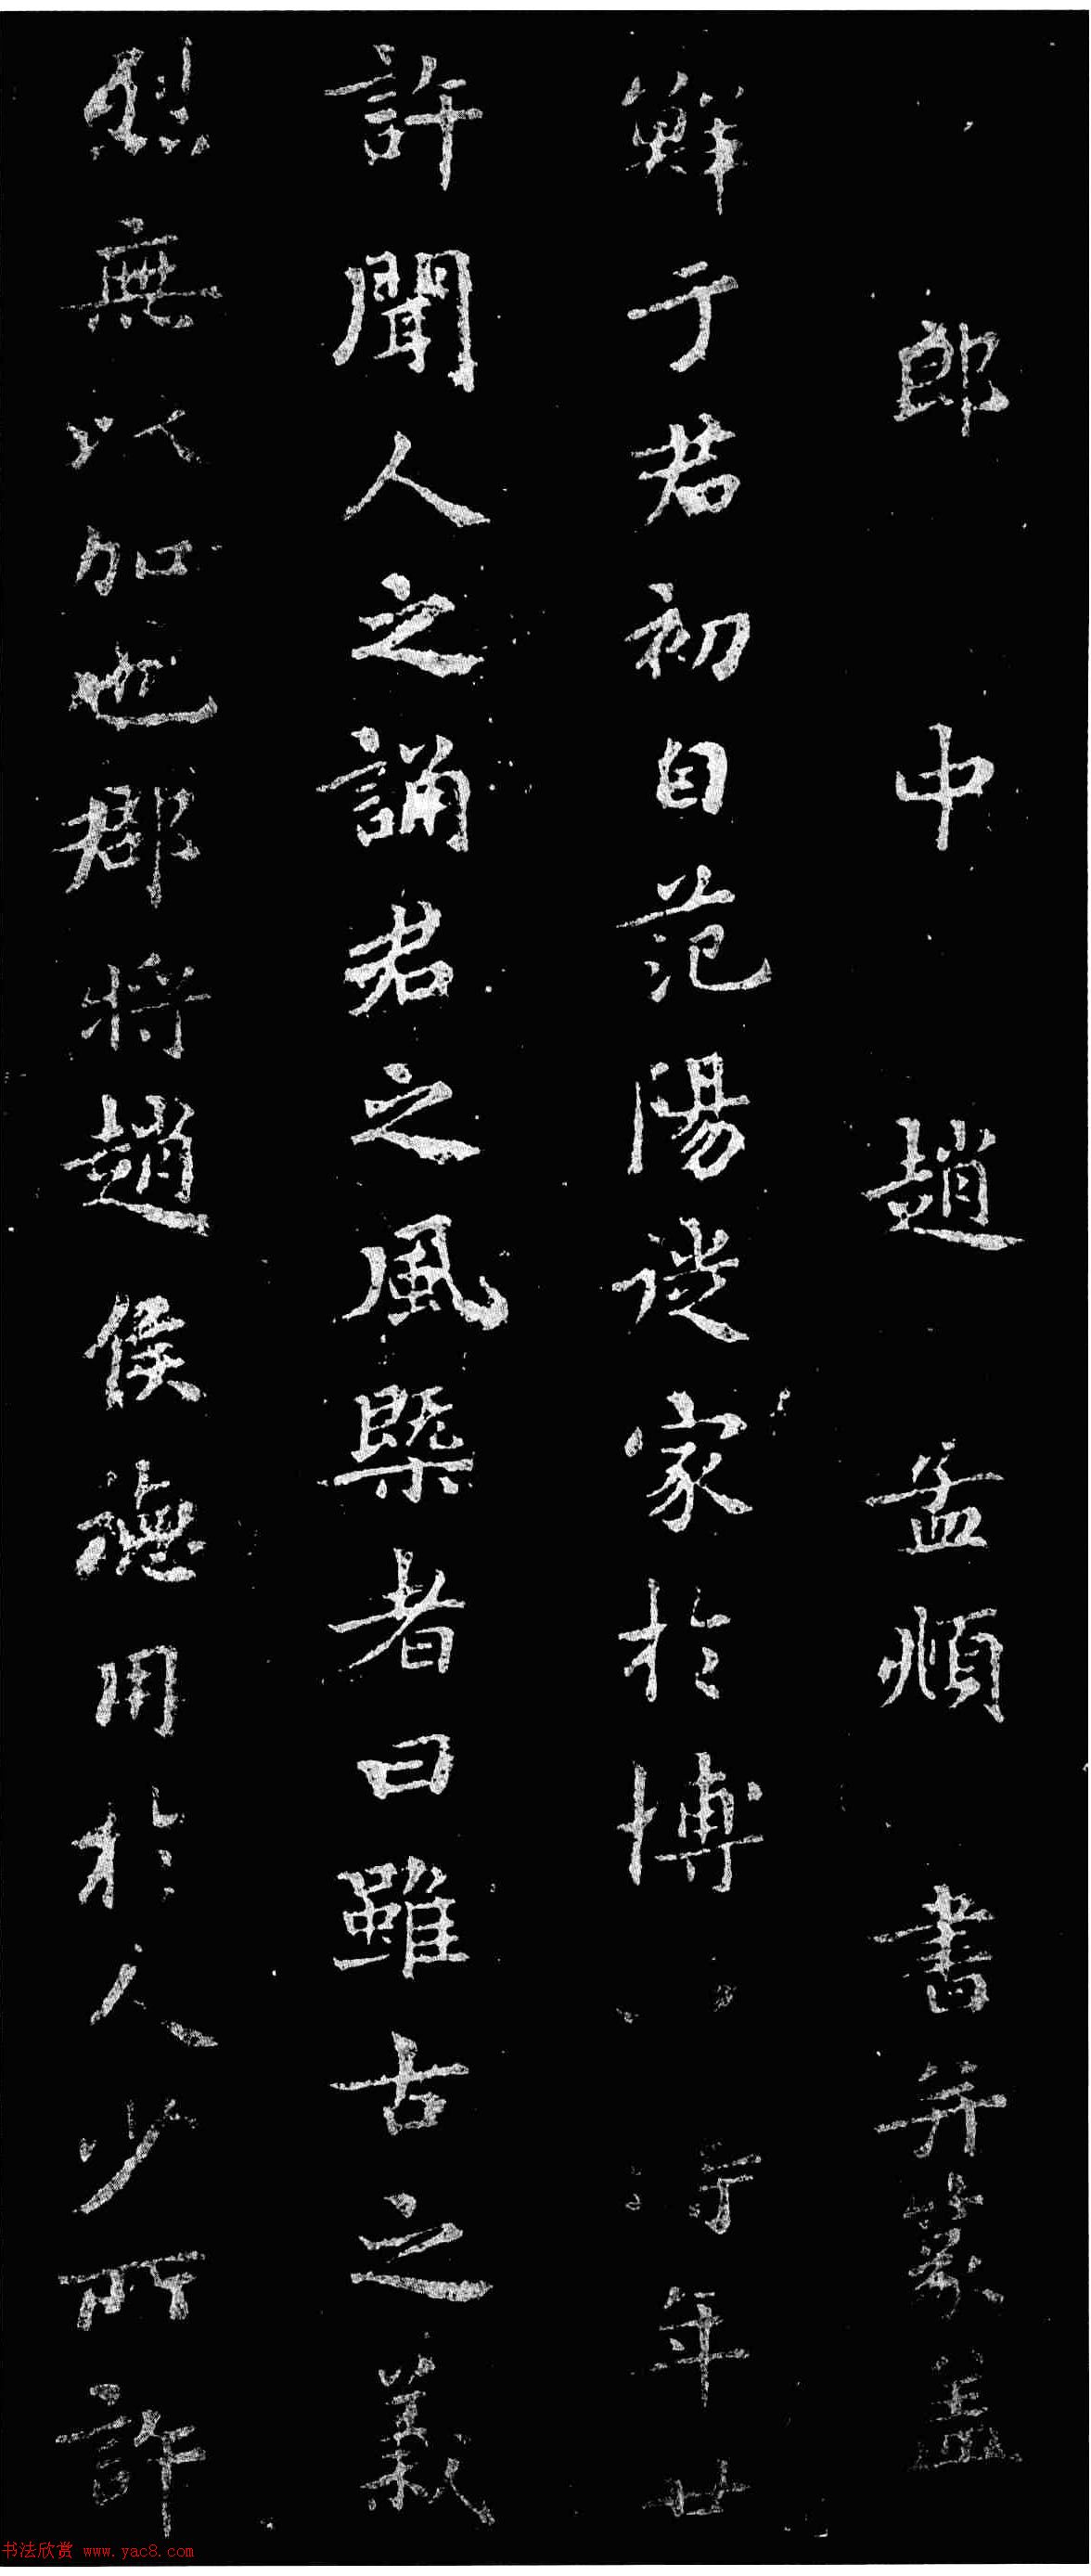 郎中趙孟頫書并篆蓋
鮮于君初自范陽徙家於博行年廿
許聞人之誦君之風槩者曰雖古之義
烈無以加也郡將趙侯德用於人少所許
书法欣赏 www.yac8.com